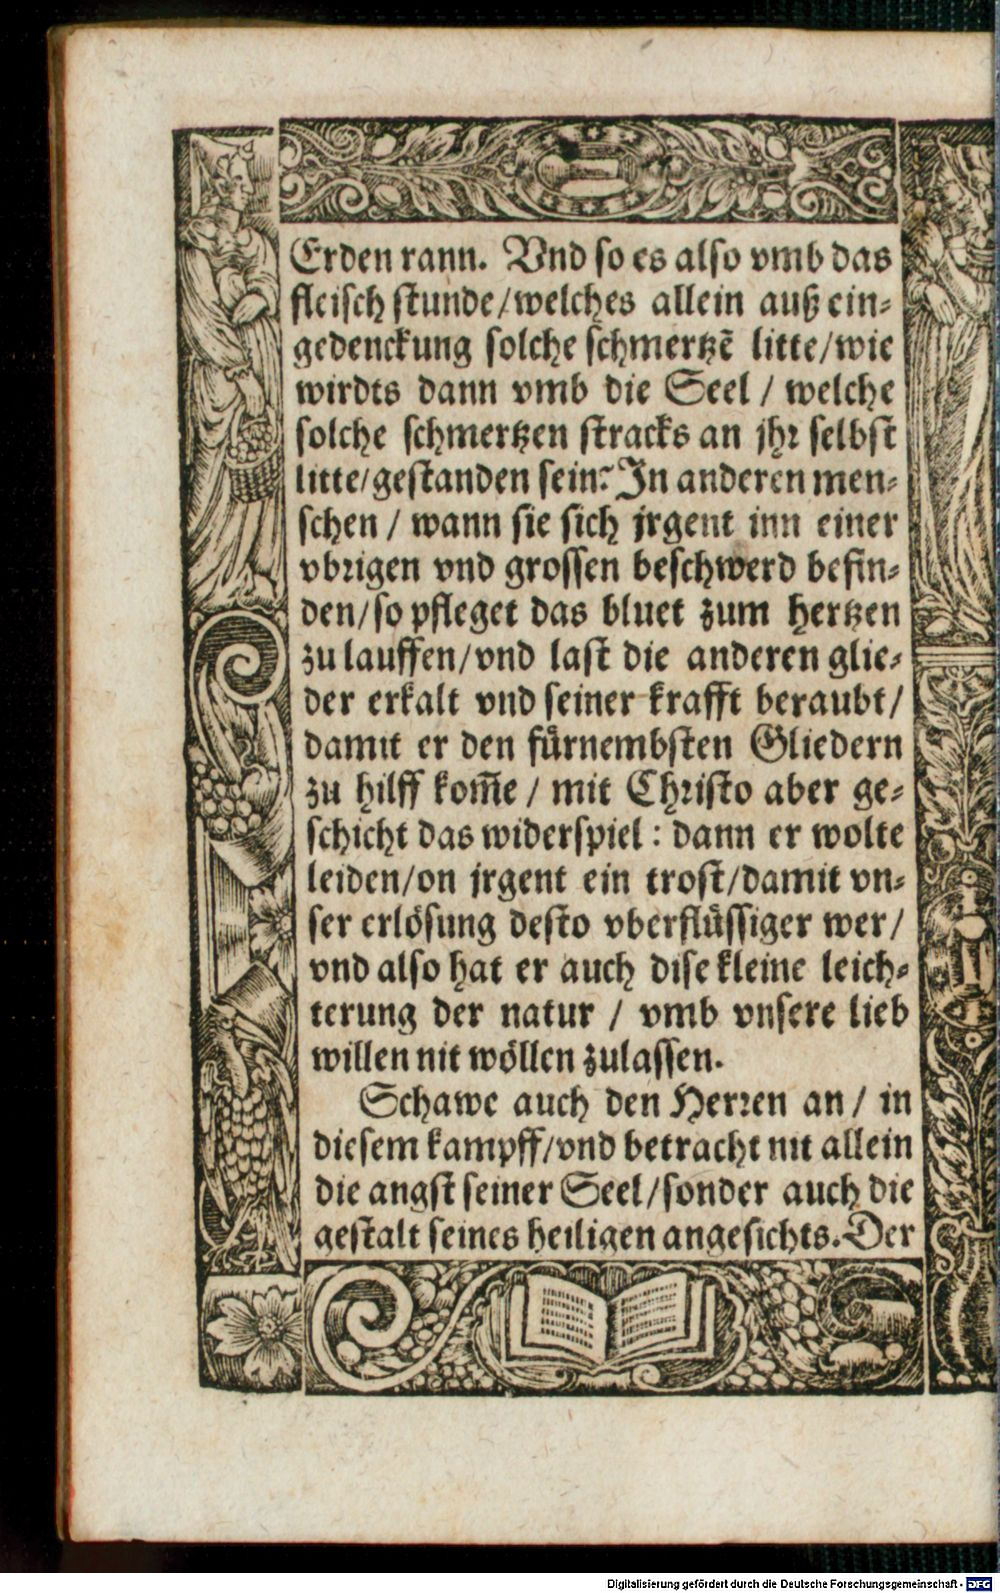 Erden rann. Vnd so es also vmb das
fleisch stunde/welches allein auß ein-
gedenckung solche schmertzẽ litte/wie
wirdts dann vmb die Seel / welche
solche schmertzen stracks an jhr selbst
litte/gestanden sein? In anderen men-
schen / wann sie sich jrgent inn einer
vbrigen vnd grossen beschwerd befin-
den/so pfleget das bluet zum hertzen
zu lauffen/vnd last die anderen glie-
der erkalt vnd seiner krafft beraubt/
damit er den fürnembsten Gliedern
zu hilff kom̃e / mit Christo aber ge-
schicht das widerspiel : dann er wolte
leiden/on jrgent ein trost/damit vn-
ser erlösung desto vberflüssiger wer/
vnd also hat er auch dise kleine leich-
terung der natur / vmb vnsere lieb
willen nit wöllen zulassen.
Schawe auch den Herren an/ in
diesem kampff/vnd betracht nit allein
die angst seiner Seel/sonder auch die
gestalt seines heiligen angesichts. Der
Digitalisierung gefördert durch die Deutsche Forschungsgemeinschaft - DFG